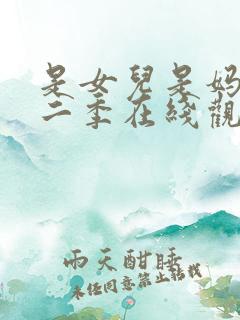 是女兒是妈
二季在线觀
雨天酣睡
未经同意禁止转载